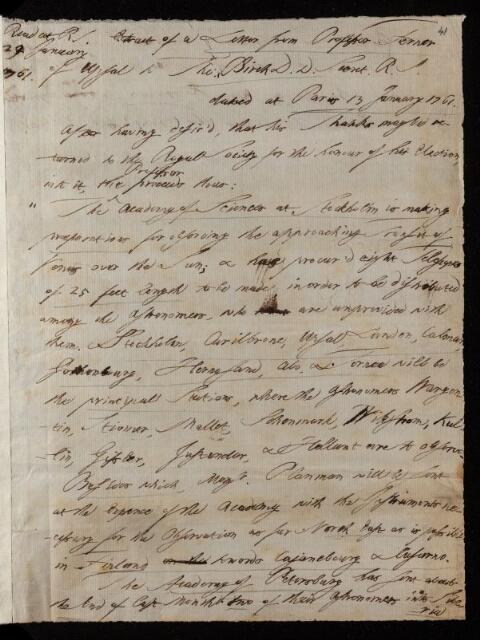 41
Read at R. S.
29 January
1761.
Extract of a Letter from Professor Ferner
of Upsal to Tho. Birch D. D. Secret. R. S.
dated at Paris 13 January 1761.
After having desir'd, that his Thanks may be re
turned to the Royal Society for the honour of his Election
into it, the Professor proceeds thus:
"The Academy of Sciences at Stockholm is making
preparations for observing the approaching Transit of
Venus over the Sun; & has procur'd eight Telescopes
of 25 feet length to be made, in order to be distributed
among the Astronomers, who are unprovided with
them. Stockholm, Carlscrone, Upsal, Lunden, Calmar,
Gothenburg, Hernosand, Abo, & Torneo will be
the principall Stations, where the Astronomers Wargen-
-tin, Strömer, Mallet, Schenmark, Wikström,
Gissler, Justander, & Hellant are to observe.
Besides which, Mag.r Planman will be sent
at the expence of the Academy with the Instruments ne-
cessary for the Observation as far North East as is possible
in Finland towards Cajanebourg &
The Academy of Petersburg has sent about
the End of last Month two of their Astronomers into Sibe
ria